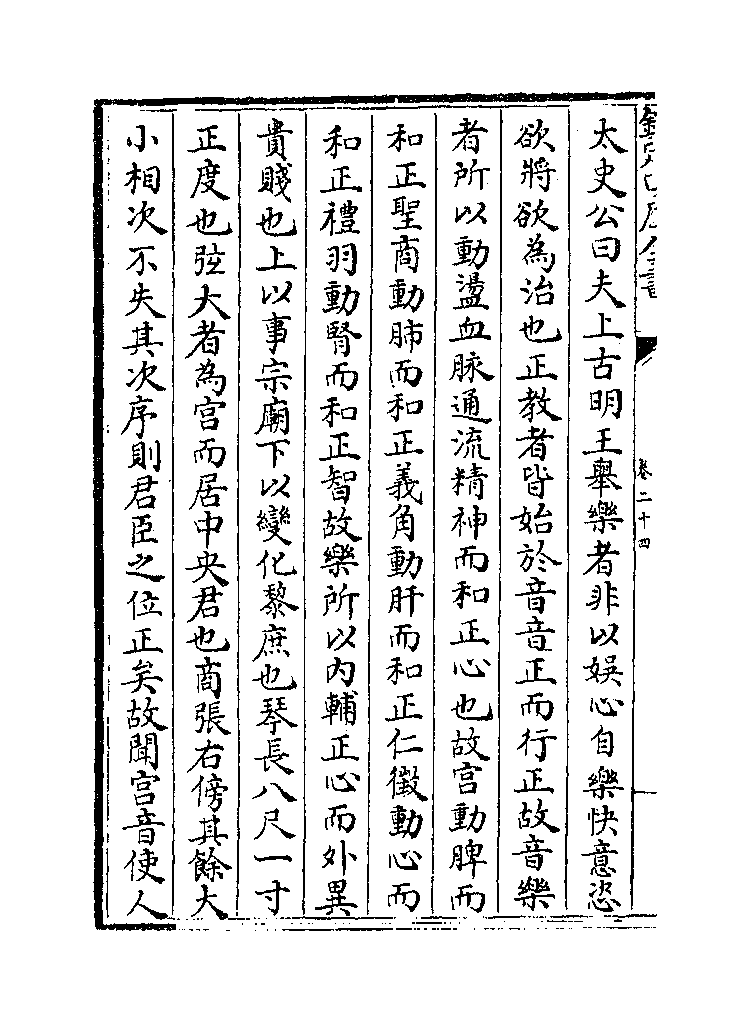 欽定四庫全書
卷二十四
太史公曰夫上古明王舉樂者非以娛心自樂快意恣
欲將欲為治也正教者皆始於音音正而行正故音樂
者所以動盪血脉通流精神而和正心也故宫動脾而
和正聖商動肺而和正義角動肝而和正仁徵動心而
和正禮羽動腎而和正智故樂所以內輔正心而外異
貴賤也上以事宗廟下以變化黎庶也琴長八尺一寸
正度也弦大者為宫而居中央君也商張右傍其餘大
小相次不失其次序則君臣之位正矣故聞宫音使人